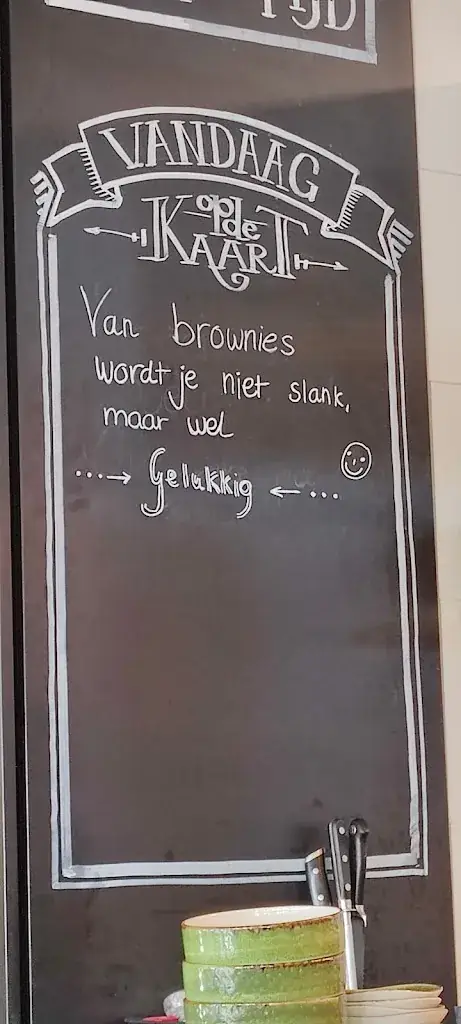 TIJD
VANDAAG
op de
KAART
Van brownies
wordt je niet slank,
maar wel
Gelukkig